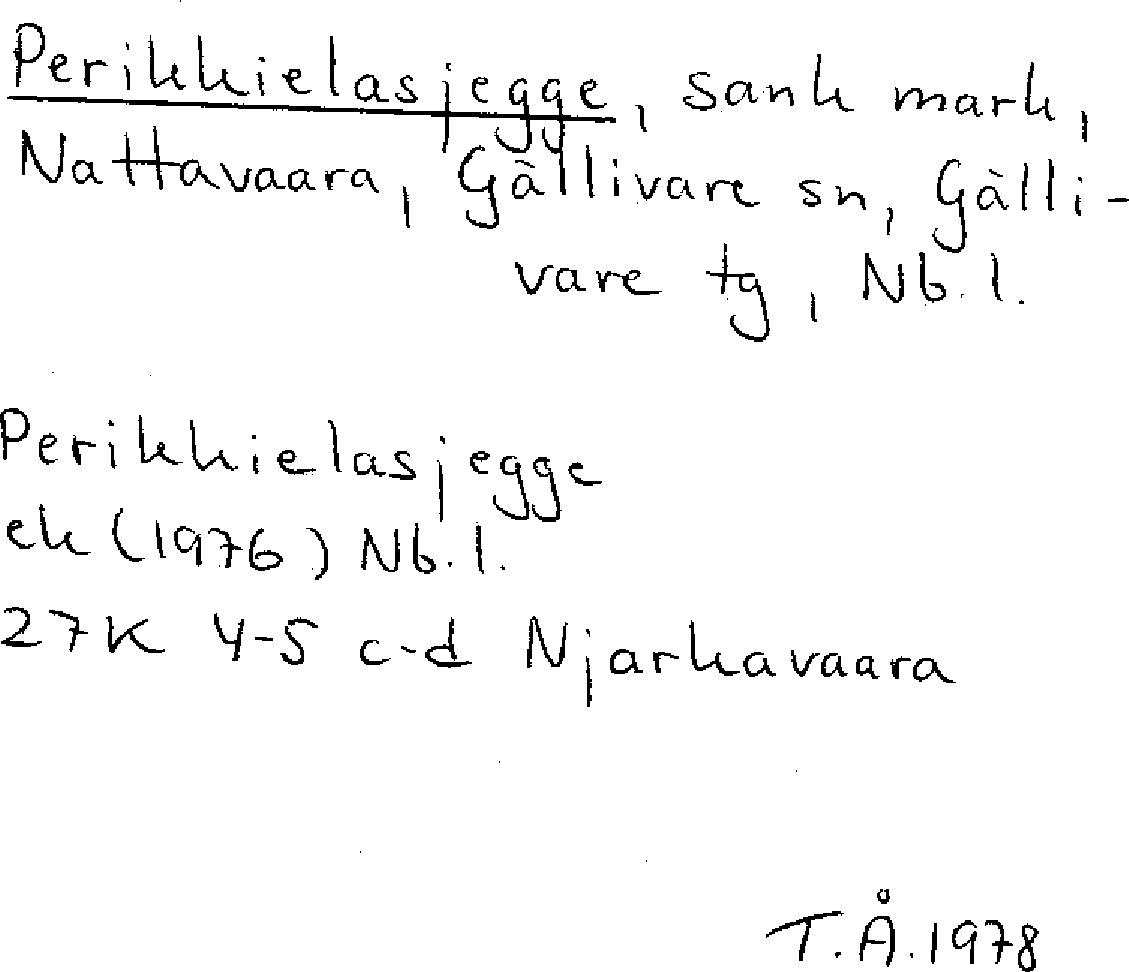 Perikkielasjegge, sank mark,
Nattavaara, Gällivare sn, Gälli-
vare tg, Nb. l.
Perikkielasjegge
ek (1976) Nb. l.
27K 4-5 c-d Njarkavaara
T.Å. 1978